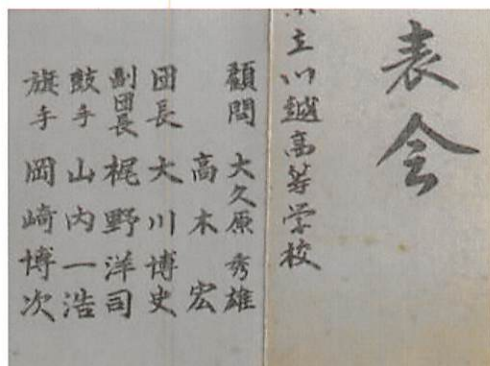 表会
立川越高等学校
顧問 大久原秀雄
高木宏
団長 大川博史
副団長 梶野洋司
鼓手 山内一浩
旗手 岡崎博次